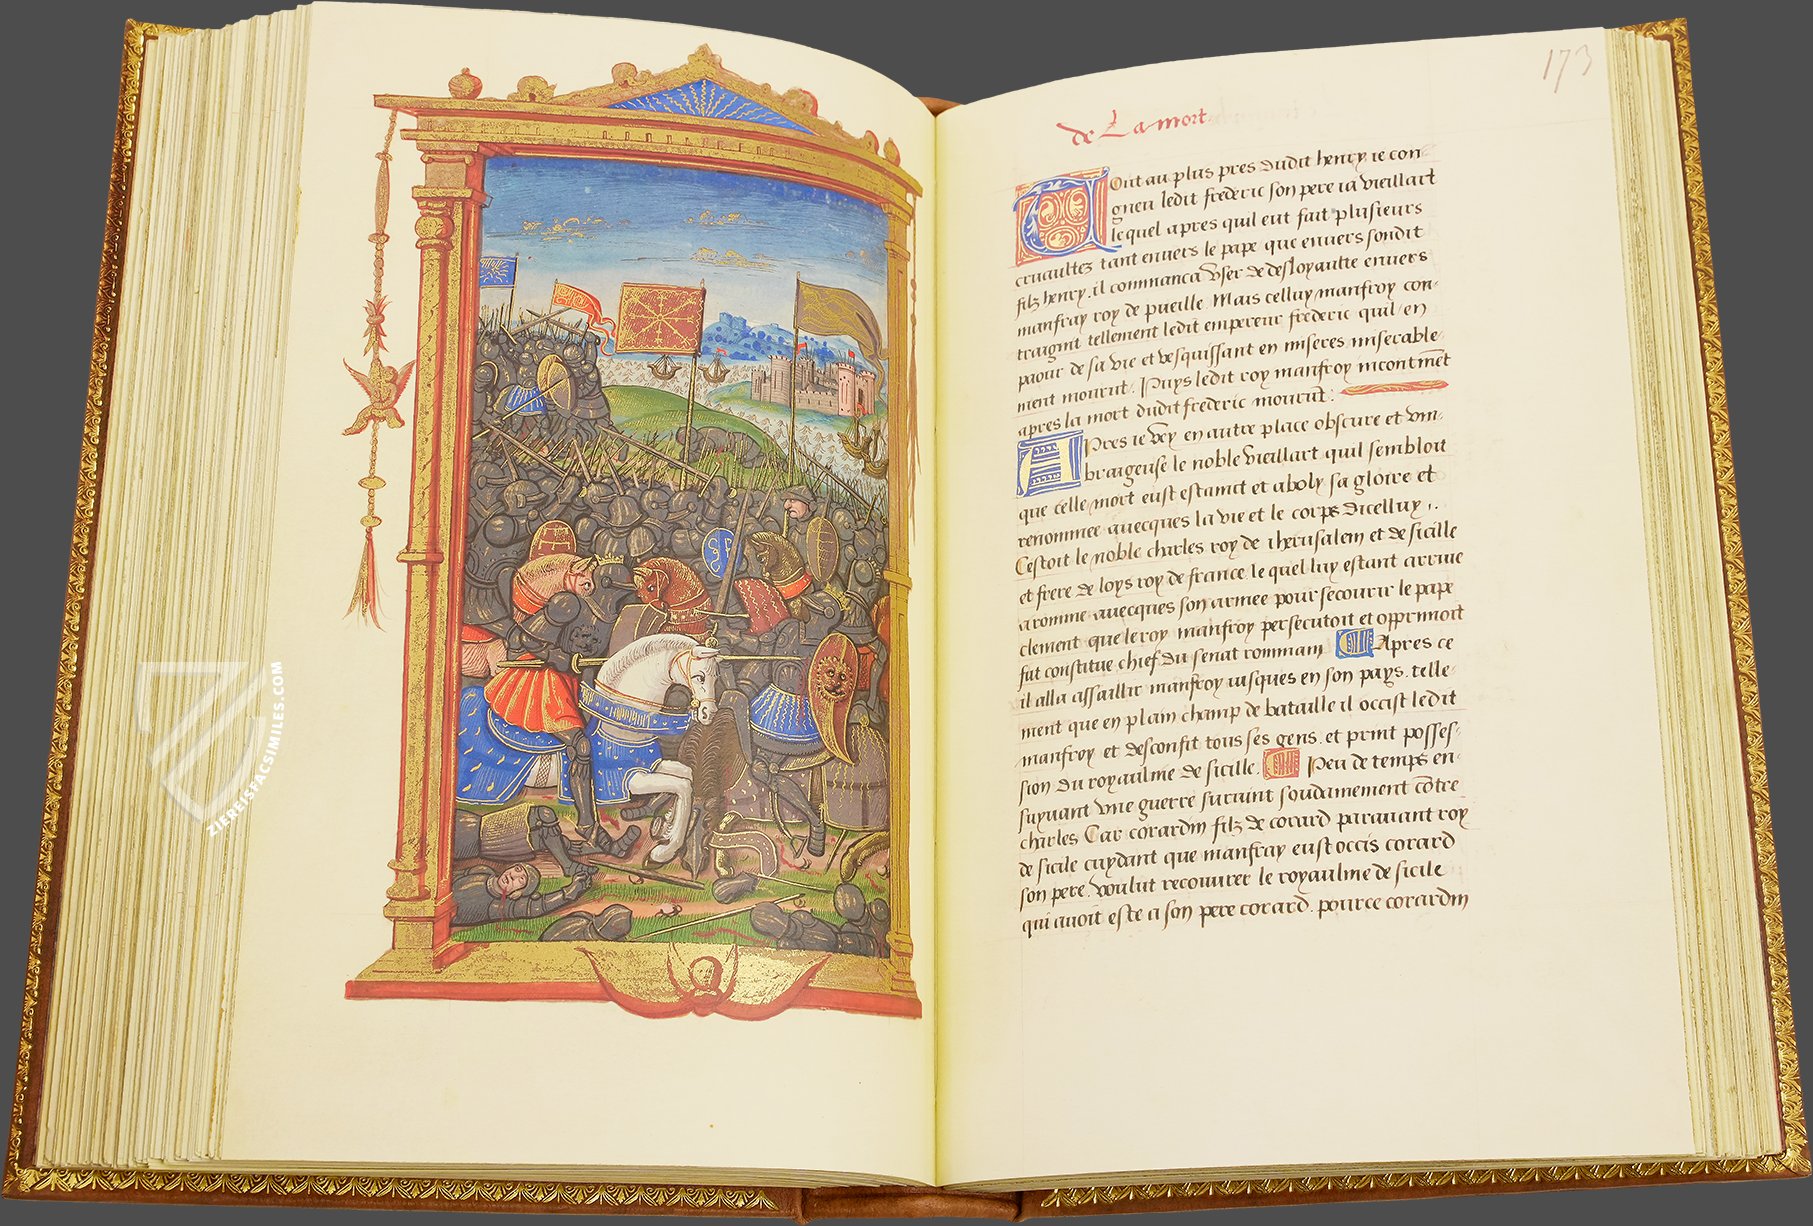 173
de La mort
Tout au plus pres dudit henry ie con-
gneu ledit frederic son pere ia vieillart
lequel apres quil eut fait plusieurs
cruaultez tant enuers le pape que enuers sondit
filz henry. il commanca vser de desloyaulte enuers
manfray roy de pueille. Mais celluy manfroy con-
traignit tellement ledit empereur frederic quil en
paour de sa vie et vesquissant en miseres miserable-
ment mourut. Puys ledit roy manfroy incontinēt
apres la mort dudit frederic mourut:
Apres ie vey en autre place obscure et vm-
braigeuse le noble vieillart quil sembloit
que celle mort eust estainct et aboly sa gloire et
renommee auecques la vie et le corps dicelluy ..
Cestoit le noble charles roy de iherusalem et de sicille
et frere de loys roy de france. le quel luy estant arriue
a romme auecques son armee pour secourir le pape
clement que le roy manfroy persecutoit et opprimoit
fut constitue chief du senat rommain. Apres ce
il alla assaillir manfroy iusques en son pays. telle-
ment que en plain champ de bataille il occist ledit
manfroy et desconfit tous ses gens. et print posses-
sion du royaulme de sicille. Peu de temps en-
suyuant vne guerre suruint soudainement cōtre
charles Car corardin filz de corard parauant roy
de sicile cuydant que manfray eust occis corard
son pere. voulut recouurer le royaulme de sicile
qui auoit este a son pere corard. pource corardin
ZIEREISFACSIMILES.COM